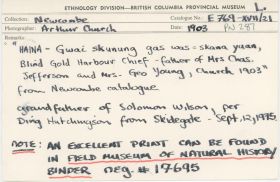 ETHNOLOGY DIVISION—BRITISH COLUMBIA PROVINCIAL MUSEUM L.
Collection: Newcombe Catalogue No.: E 769-XVII/21
Photographer: Arthur Church Date: 1903 PN 287
Remarks:
"HAINA - Guai skunung gas was = skana yuan,
Blind Gold Harbour Chief - father of Mrs Chas.
Jefferson and Mrs. Geo Young, Church 1903"
from Newcombe catalogue
grandfather of Solomon Wilson, per
Doug Hutchingson from Skidegate - Sept. 12, 1975
NOTE: AN EXCELLENT PRINT CAN BE FOUND
IN FIELD MUSEUM OF NATURAL HISTORY
BINDER neg. # 17695